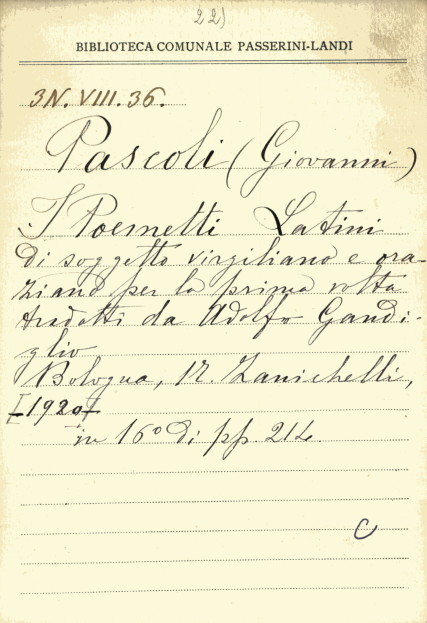 22)
BIBLIOTECA COMUNALE PASSERINI-LANDI
3N.VIII.36.
Pascoli (Giovanni)
I Poemetti Latini
di soggetto virgiliano e ora-
ziano per la prima volta
tradotti da Adolfo Gandi-
glio
Bologna, N. Zanichelli,
[1920]
in 16° di pp. 214
C